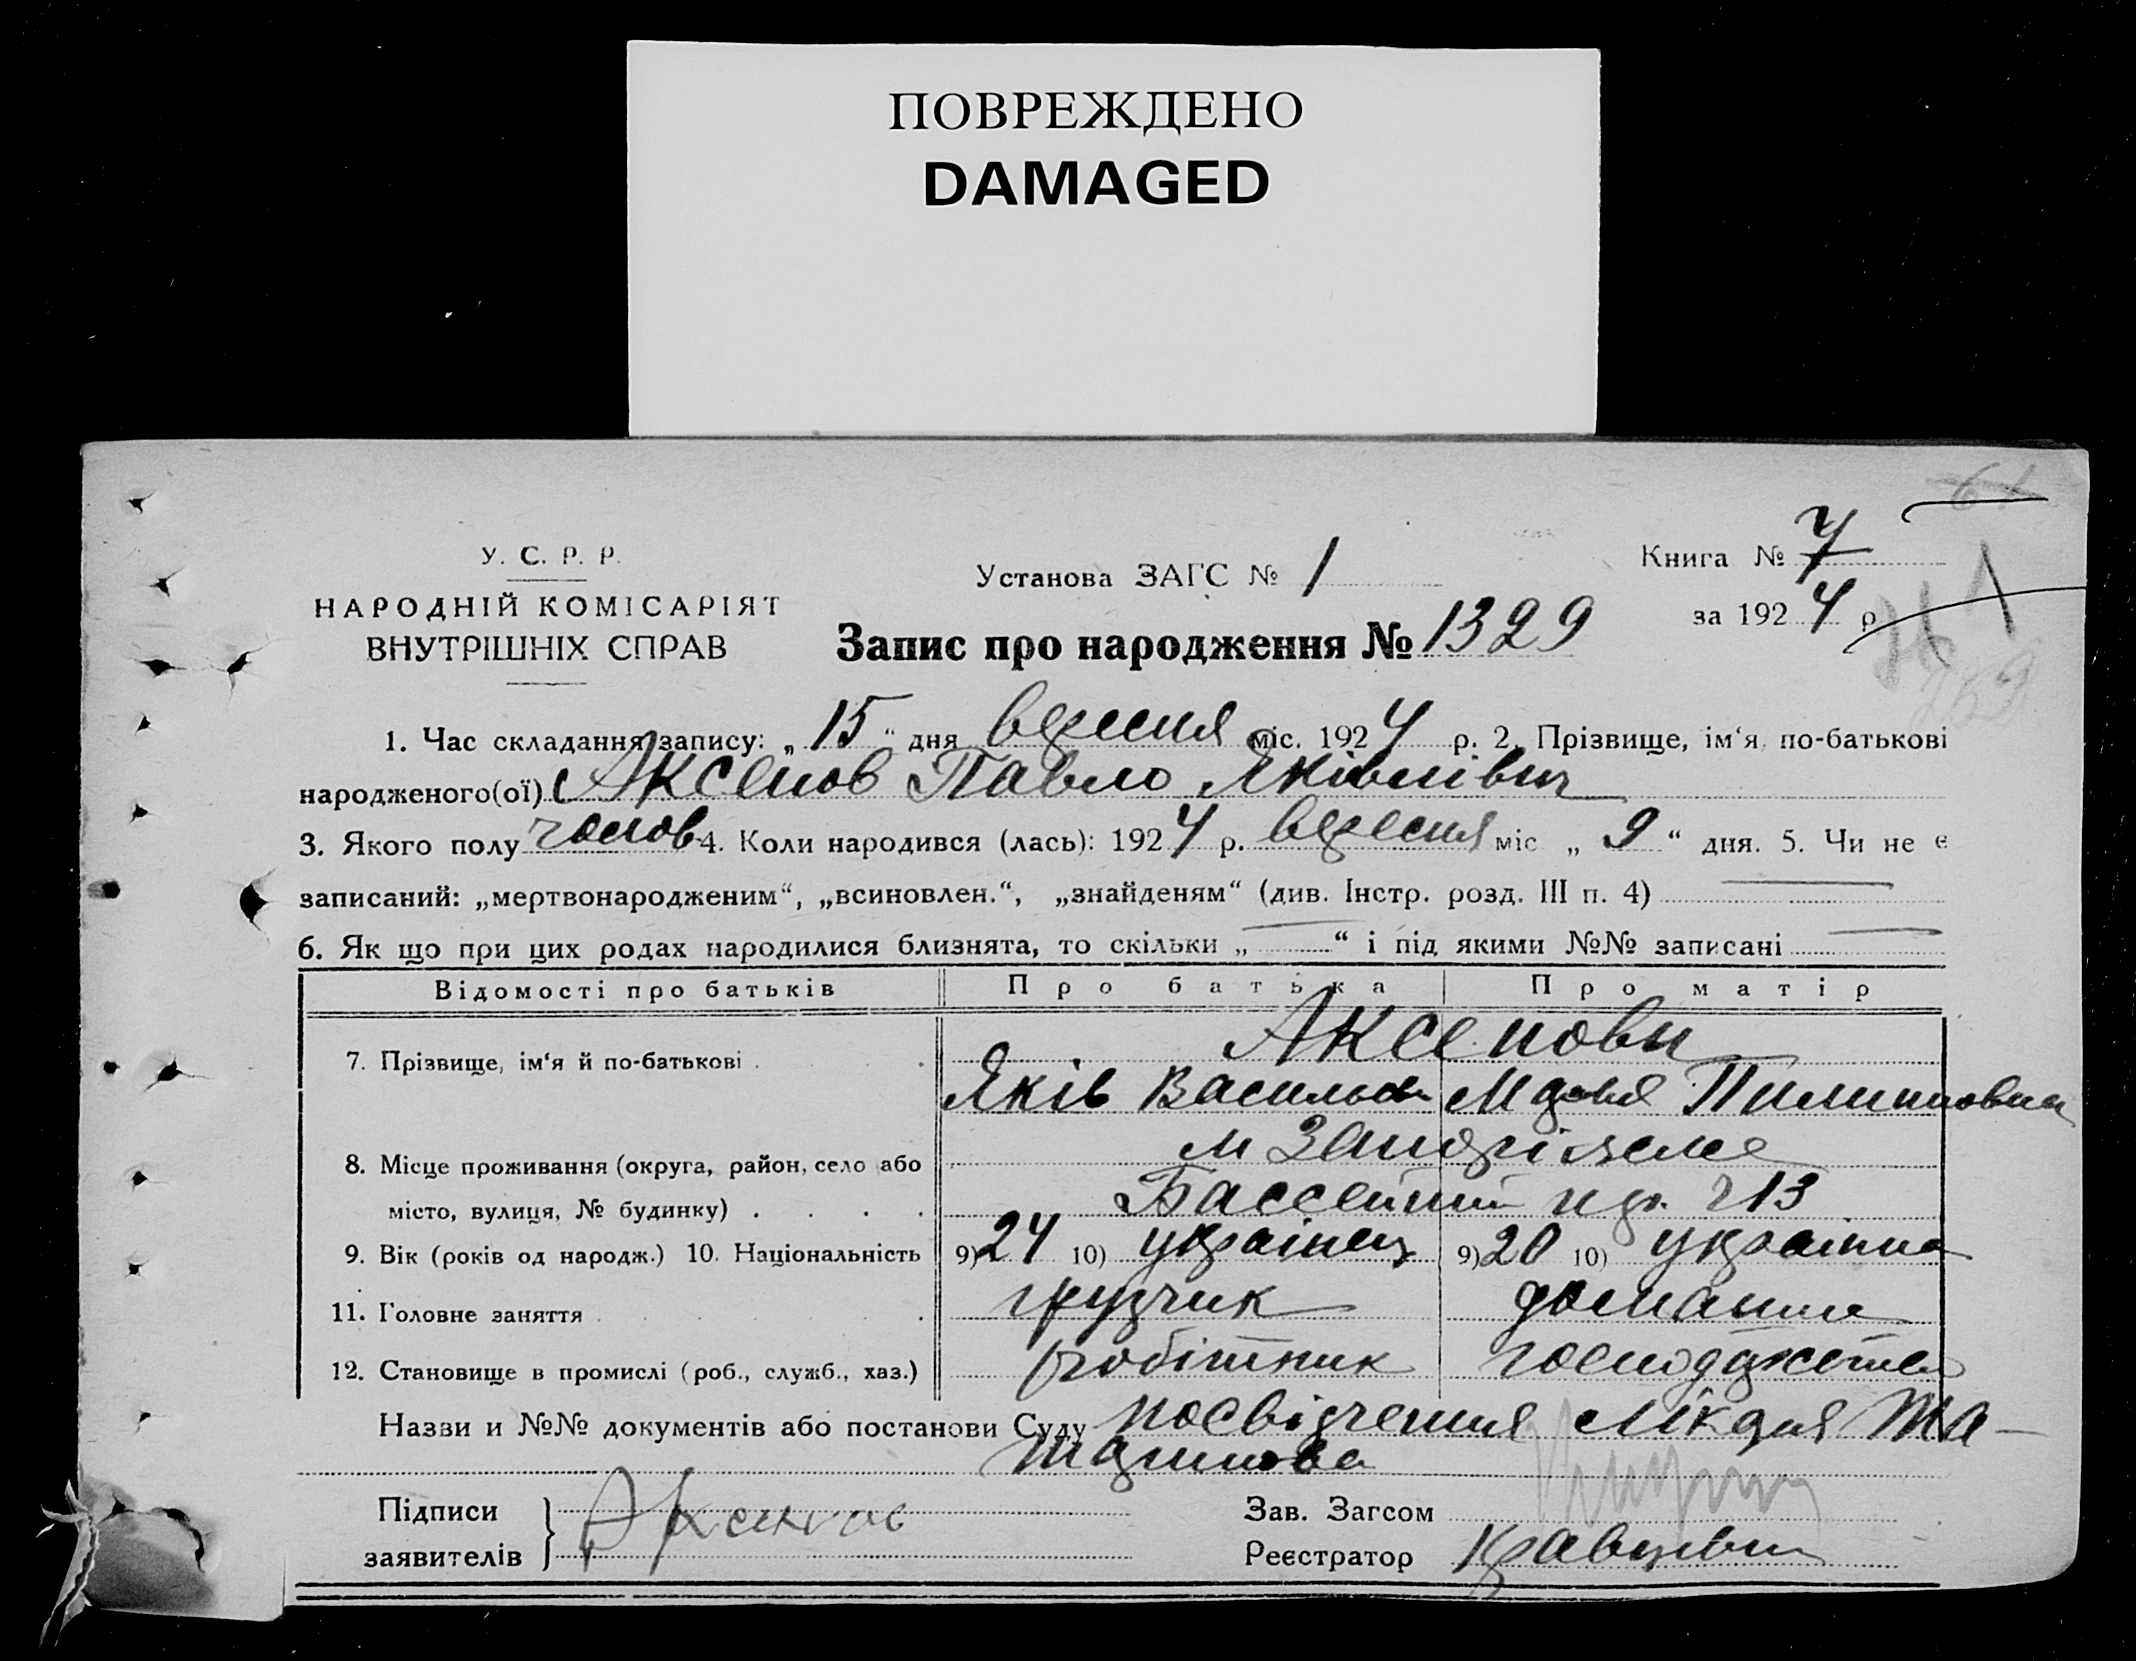 ПОВРЕЖДЕНО
DAMAGED
У. С. Р. Р.
НАРОДНІЙ КОМІСАРІЯТ
ВНУТРІШНІХ СПРАВ
Установа ЗАГС № 1
Книга № 7
за 1924 р
Запис про народження № 1329
1. Час складання запису: „ 15 “ дня вересня міс. 1924 р. 2. Прізвище, ім‘я, по-батькові
народженого(ої) Аксенов Павло Яківлівич
3. Якого полу чолов 4. Коли народився (лась): 1924 р. вересня міс „ 9 “ дня. 5. Чи не є
записаний: „мертвонародженим“, „всиновлен.“, „знайденям“ (див. Інстр. розд. III п. 4)
6. Як що при цих родах народилися близнята, то скільки „ “ і під якими №№ записані
Відомості про батьків Про батька Про матір
Аксенови
7. Прізвище, ім‘я й по-батькові .
Яків Васильов Марья Пилиповна
8. Місце проживання (округа, район, село або
м
місто, вулиця, № будинку) . . . .
13
9. Вік (років од народж.) 10. Національність 9) 24 10) українец 9) 20 10) українка
11. Головне заняття . грузчик домашне
12. Становище в промислі (роб., служб., хаз.) робітник господарство
Назви и №№ документів або постанови Суду посвідчення лікаря
Підписи
заявителів
Аксенов
Зав. Загсом
Реєстратор